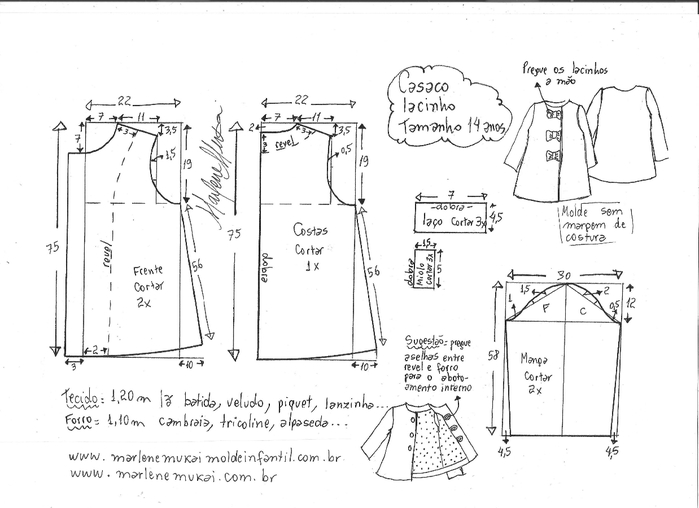 Casaco
lacinho
Tamanho 14 anos
Pregue os lacinhos
a mão
Molde sem
margem de
costura
22
7 11
3
3,5
7
1,5
19
75
56
revel
Frente
Cortar
2x
2
3
10
22
7 11
2
3
3
3,5
revel
0,5
19
75
56
Costas
Cortar
1x
dobra
10
7
dobra
laço Cortar 3x
4,5
1,5
dobra
Miolo
cortar 3x
5
30
1,5
2
1
F C
0,5
12
58
Manga
Cortar
2x
4,5 4,5
Sugestão= pregue
aselhas entre
revel e forro
para o aboto-
amento interno
Tecido= 1,20m lã batida, veludo, piquet, lanzinha...
Forro= 1,10m cambraia, tricoline, alpaseda...
www.marlenemukaimoldeinfantil.com.br
www.marlenemukai.com.br